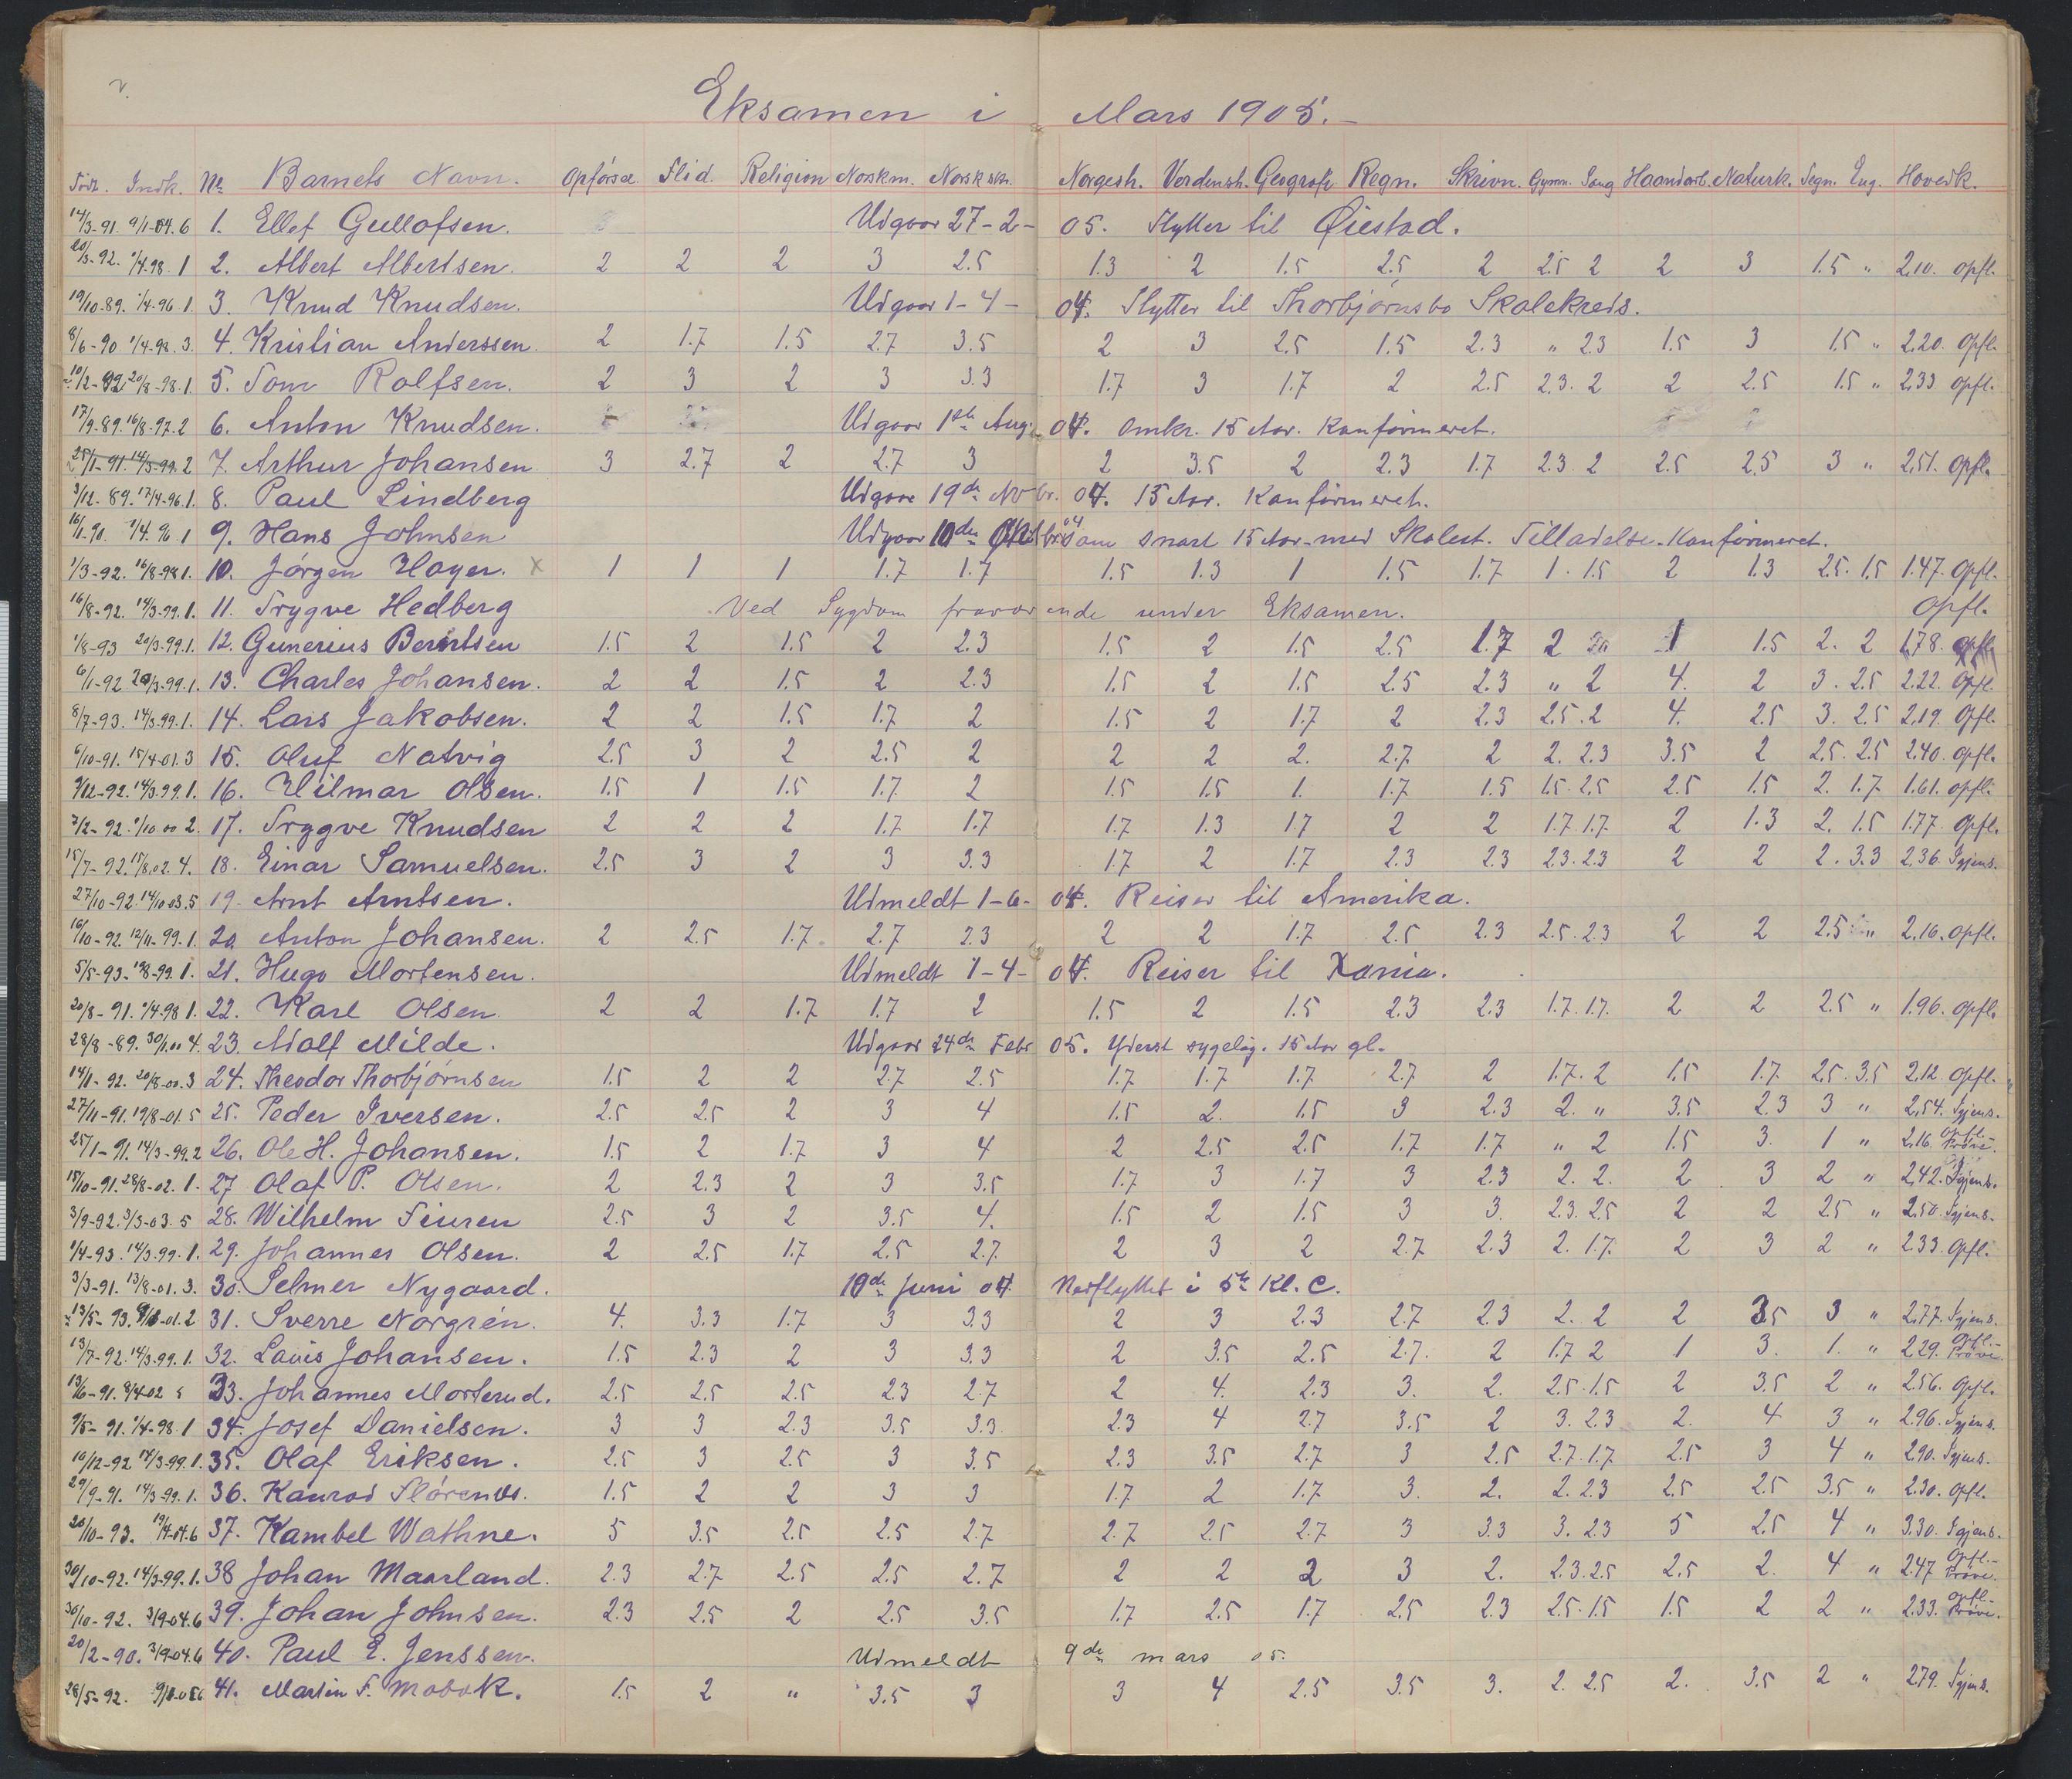 Eksamen i Mars 1905.
Födt. Indk. No Barnets Navn. Opförsel Flid. Religion Norskm. Norsk skr. Norgesh. Verdensh. Geografi Regn. Skrivn. Gymn. Sang Haandarb. Naturk. Tegn. Eng. Hovedk.
14/3-91. 9/1-04. 6 1. Ellef Gullofsen. Udgaar 27-2-05. Flytter til Øiestad.
20/3-92. 1/4.98. 1 2. Albert Albertsen. 2 2 2 3 2.5 1.3 2 1.5 2.5 2 2.5 2 2 3 1.5 " 2.10. opfl.
19/10-89. 1/4-96 1 3. Knud Knudsen. Udgaar 1-4-04. Flytter til Thorbjørnsbo Skolekreds.
8/6-90 1/4-98. 3. 4. Kristian Anderssen. 2 1.7 1.5 2.7 3.5 2 3 2.5 1.5 2.3 " 2.3 1.5 3 1.5 " 2.20. opfl.
10/2-92. 20/8-98. 1. 5. Tom Rolfsen. 2 3 2 3 3.3 1.7 3 1.7 2 2.5 2.3. 2 2 2.5 1.5 " 2.33 opfl.
17/9.89. 16/8-97. 2 6. Anton Knudsen. Udgaar 1ste Aug. 04. Omkr. 15 Aar. Konfirmeret.
25/1-91. 14/3-99. 2 7. Arthur Johansen 3 2.7 2 2.7 3 2 3.5 2 2.3 1.7 2.3 2 2.5 2.5 3 " 2.51. opfl.
3/12. 89. 17/4-96. 1. 8. Paul Lindberg Udgaar 19de Novbr. 04. 15 Aar. Konfirmeret.
16/1-90. 1/4. 96 1 9. Hans Johnsen Udgaar 10de Oktbr. 04 som snart 15 Aar-med Skolest. Tilladelse-Konfirmeret.
1/3-92. 16/8-98 1. 10. Jørgen Hoyer. x 1 1 1 1.7 1.7 1.5 1.3 1 1.5 1.7 1. 1.5 2 1.3 2.5. 1.5 1.47. opfl.
16/8-92. 14/3-99. 1. 11. Trygve Hedberg Ved Sygdom fraværende under Eksamen. opfl.
1/8-93 20/3-99. 1. 12. Gunerius Berntsen 1.5 2 1.5 2 2.3 1.5 2 1.5 2.5 1.7 2 1 1.5 2. 2 1.78. opfl.
6/1-92 20/3-99. 1. 13. Charles Johansen. 2 2 1.5 2 2.3 1.5 2 1.5 2.5 2.3 " 2 4. 2 3. 2.5 2.22. opfl.
8/7-93. 14/3.99. 1. 14. Lars Jakobsen. 2 2 1.5 1.7 2 1.5 2 1.7 2 2.3 2.5. 2 4. 2.5 3. 2.5 2.19. opfl.
6/10-91. 15/4-01. 3 15. Oluf Natvig 2.5 3 2 2.5 2 2 2 2. 2.7 2 2. 2.3 3.5 2 2.5. 2.5 2.40. opfl.
9/12-92. 14/3.99. 1. 16. Hilmar Olsen. 1.5 1 1.5 1.7 2 1.5 1.5 1. 1.7 1.5 1.5. 2.5 2.5 1.5 2. 1.7 1.61. opfl.
7/2-92. 1/10 00 2. 17. Trygve Knudsen 2 2 2 1.7 1.7 1.7 1.3 1.7 2 2 1.7 1.7. 2 1.3 2. 1.5 1.77. opfl.
15/7-92. 15/8.02. 4. 18. Einar Samuelsen. 2.5 3 2 3 3.3 1.7 2 1.7 2.3 2.3 2.3. 2.3 2 2 2. 3.3 2.36. Igjens.
27/10-92. 14/10 03. 5 19. Arnt Arntsen. Udmeldt 1-6-04. Reiser til Amerika.
16/10-92. 12/11-99. 1. 20 Anton Johansen. 2 2.5 1.7. 2.7 2.3 2 2 1.7 2.5 2.3 2.5. 2.3 2 2 2.5 " 2.16. opfl.
5/5-93. 1/8-99. 1. 21. Hugo Mortensen. Udmeldt 1-4-04. Reiser til Xania.
20/8-91. 1/4-98 1. 22. Karl Olsen 2 2 1.7 1.7 2 1.5 2 1.5 2.3 2.3 1.7. 1.7. 2 2 2.5 " 1.96. opfl.
28/8-89. 30/1.00 4. 23. Adolf Milde. Udgaar 24de Febr 05. Yderst sygelig. 15 Aar gl.
14/1-92. 20/8-00. 3 24. Theodor Thorbjørnsen 1.5 2 2 2.7 2.5 1.7 1.7 1.7 2.7 2 1.7. 2 1.5 1.7 2.5. 3.5 2.12. opfl.
27/11-91. 19/8-01. 5 25. Peder Iversen. 2.5 2.5 2 3 4 1.5 2. 1.5 3 2.3 2. " 3.5 2.3 3 " 2.54. Igjens.
25/1-91. 14/3-99. 2 26. Ole H. Johansen. 1.5 2 1.7 3 4 2 2.5 2.5 1.7 1.7 " 2 1.5 3. 1 " 2.16. opfl.- Prøve.
15/10-91. 28/8-02. 1. 27 Olaf P. Olsen. 2 2.3 2 3 3.5 1.7 3 1.7 3 2.3 2. 2. 2 3 2 " 2.42. Igjens.
3/9-92. 3/3-03. 5 28. Wilhelm Feuren 2.5 3 2 3.5 4. 1.5 2 1.5 3 3. 2.3. 2.5 2 2 2.5 " 2.50. Igjens.
1/4-93. 14/3.99. 1. 29. Johannes Olsen. 2 2.5 1.7 2.5 2.7. 2 3 2 2.7 2.3 2. 1.7. 2 3 2 " 2.33. opfl.
3/3-91. 13/8-01. 3. 30. Selmer Nygaard. 10de Juni 04 Nedflyttet i 5te Kl. C.
13/5-93. 01. 2 31. Sverre Norgrén. 4. 3.3 1.7 3 3.3 2 3 2.3 2.7 2.3 2. 2 2 3.5 3 " 2.77. Igjens.
13/7-92. 14/3.99. 1. 32. Louis Johansen. 1.5 2.3 2 3 3.3 2 3.5 2.5 2.7. 2 1.7 2 1 3. 1. " 2.29. opfl.- Prøve.
13/6-91. 8/4 02 5 33. Johannes Morterud. 2.5 2.5 2.5 2.3 2.7 2 4. 2.3 3. 2. 2.5. 1.5 2 3.5 2 " 2.56. opfl.
9/5-91. 1/4-98. 1 34. Josef Danielsen. 3 3 2.3 3.5 3.3 2.3 4 2.7 3.5 2 3. 2.3 2. 4 3 " 2.96. Igjens.
10/12-92 14/3-99. 1. 35. Olaf Eriksen. 2.5 3 2.5 3 3.5 2.3 3.5 2.7 3 2.5 2.7. 1.7 2.5 3 4 " 2.90. Igjens.
29/9-91. 14/3-99. 1. 36. Konrad Flørenæs. 1.5 2 2 3 3 1.7 2 1.7 3. 2. 2. 2.3 2.5 2.5 3.5 " 2.30. opfl.
20/10-93. 19/4-04. 6 37. Kambel Wathne. 5 3.5 2.5 2.5 2.7 2.7 2.5 2.7 3 3.3 3. 2.3 5 2.5 4 " 3.30. Igjens.
30/10-92. 14/3-99. 1. 38 Johan Maarland. 2.3 2.7 2.5 2.5 2.7 2 2 2 3 2. 2.3. 2.5 2.5 2. 4 " 2.47 opfl.- Prøve.
30/10-92. 3/9-04. 6 39. Johan Johnsen. 2.3 2.5 2 2.5 3.5 1.7 2.5 1.7 2.5 2.3 2.5. 1.5 1.5 2 2 " 2.33. opfl.- Prøve.
20/2-90. 3/9-04. 6 40. Paul E. Jenssen. Udmeldt 9de mars 05.
28/5-92. 41. Martin F. 1.5 2 " 3.5 3 3 4 2.5 3.5 3. 2. 2.5 2. 3.5 2 " 2.79. Igjens.